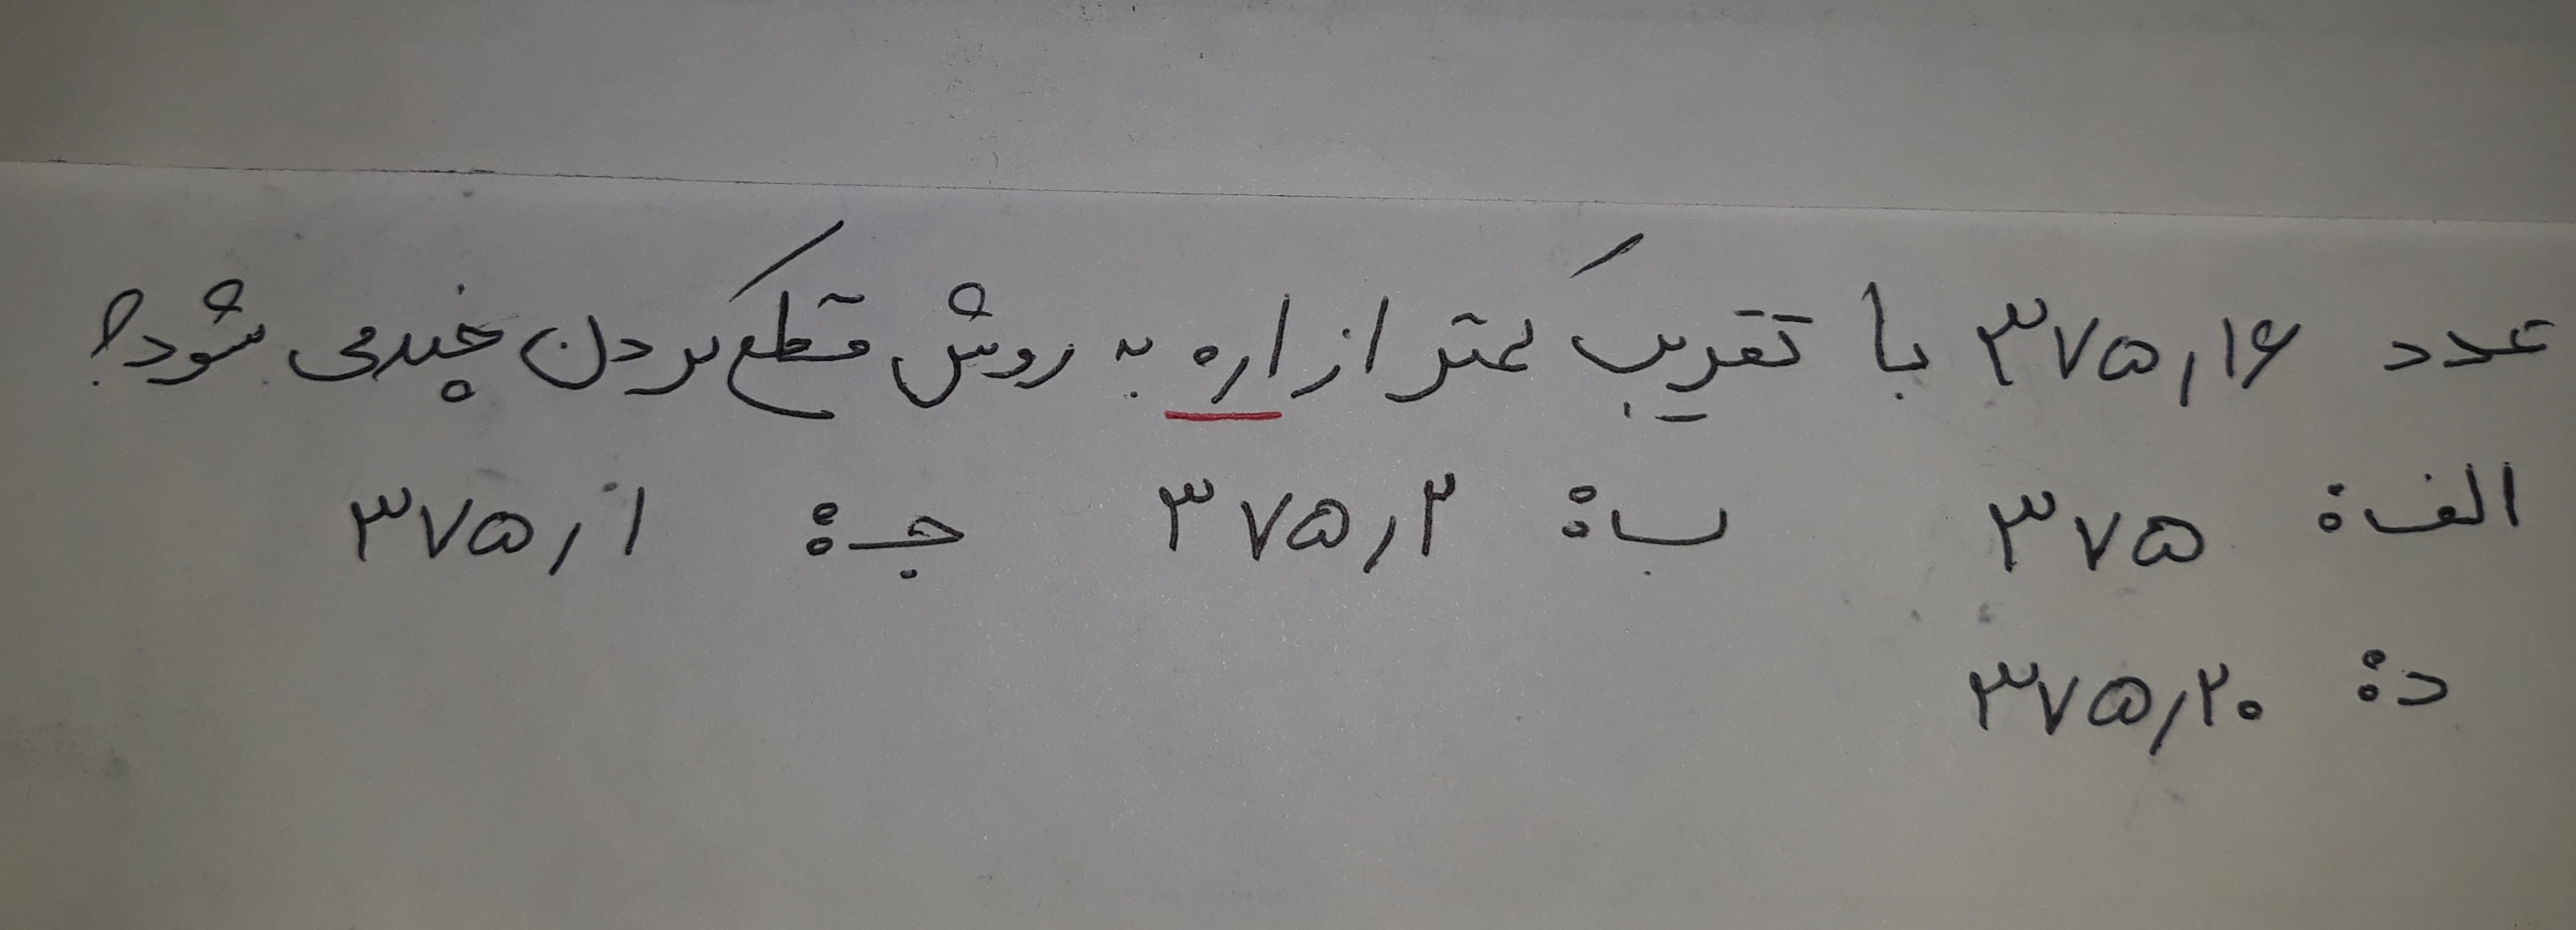 عدد ۳۷۵٫۱۶ با تقریب کمتر از ۰٫۱ به روش قطع کردن چند می شود؟
الف: ۳۷۵ ب: ۳۷۵٫۲ ج: ۳۷۵٫۱
د: ۳۷۵٫۲۰